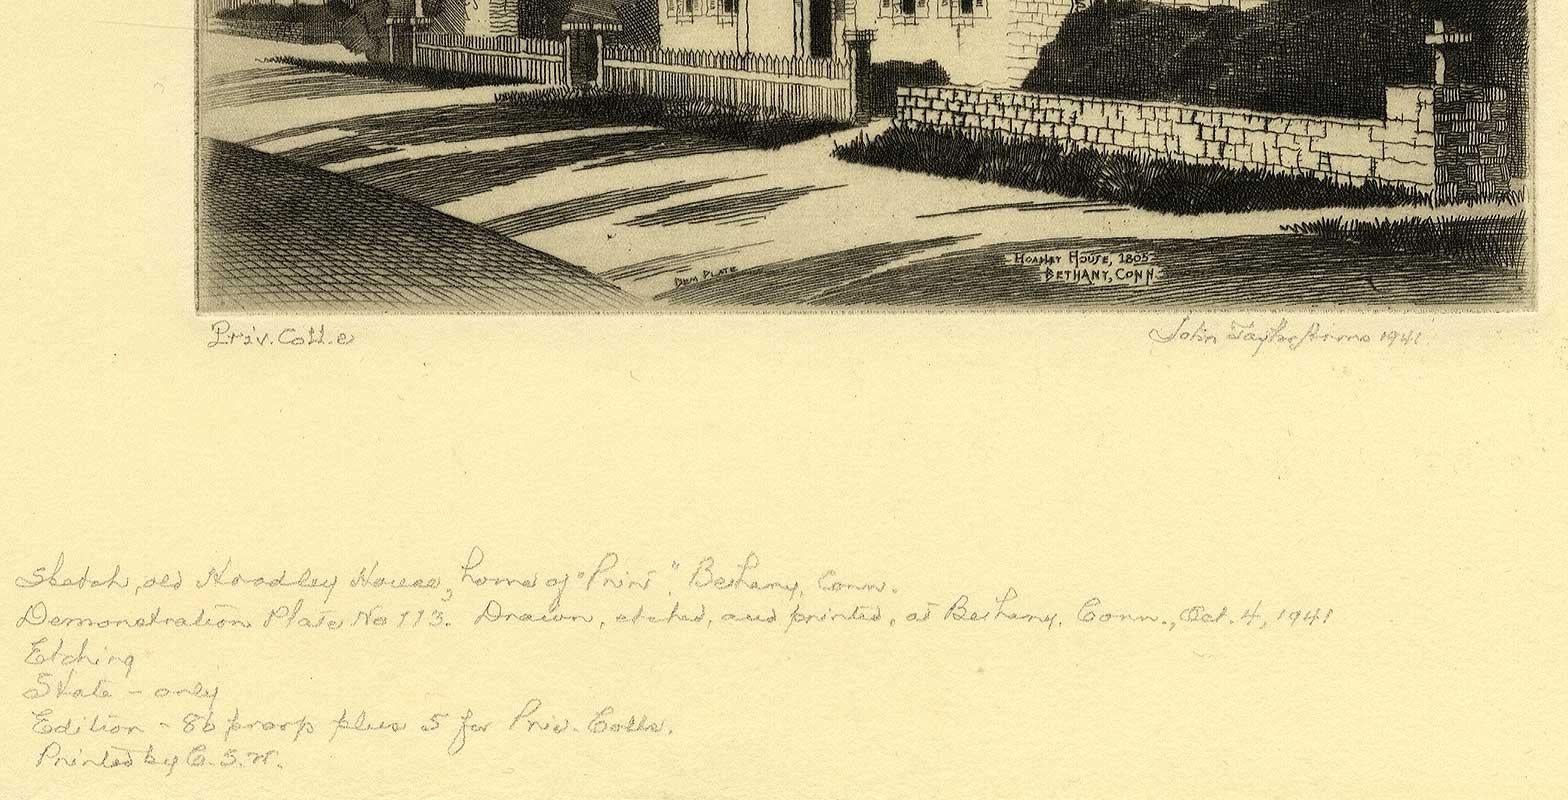 DEM PLATE
HOADLEY HOUSE, 1805
BETHANY, CONN.
Priv. Coll.
John Taylor Arms 1941
Sketch, old Hoadley House, home of "Print", Bethany, Conn.
Demonstration Plate No 113. Drawn, etched, and printed, at Bethany, Conn., Oct. 4, 1941
Etching
State - only
Edition - 86 proofs plus 5 for Priv. Colls.
Printed by